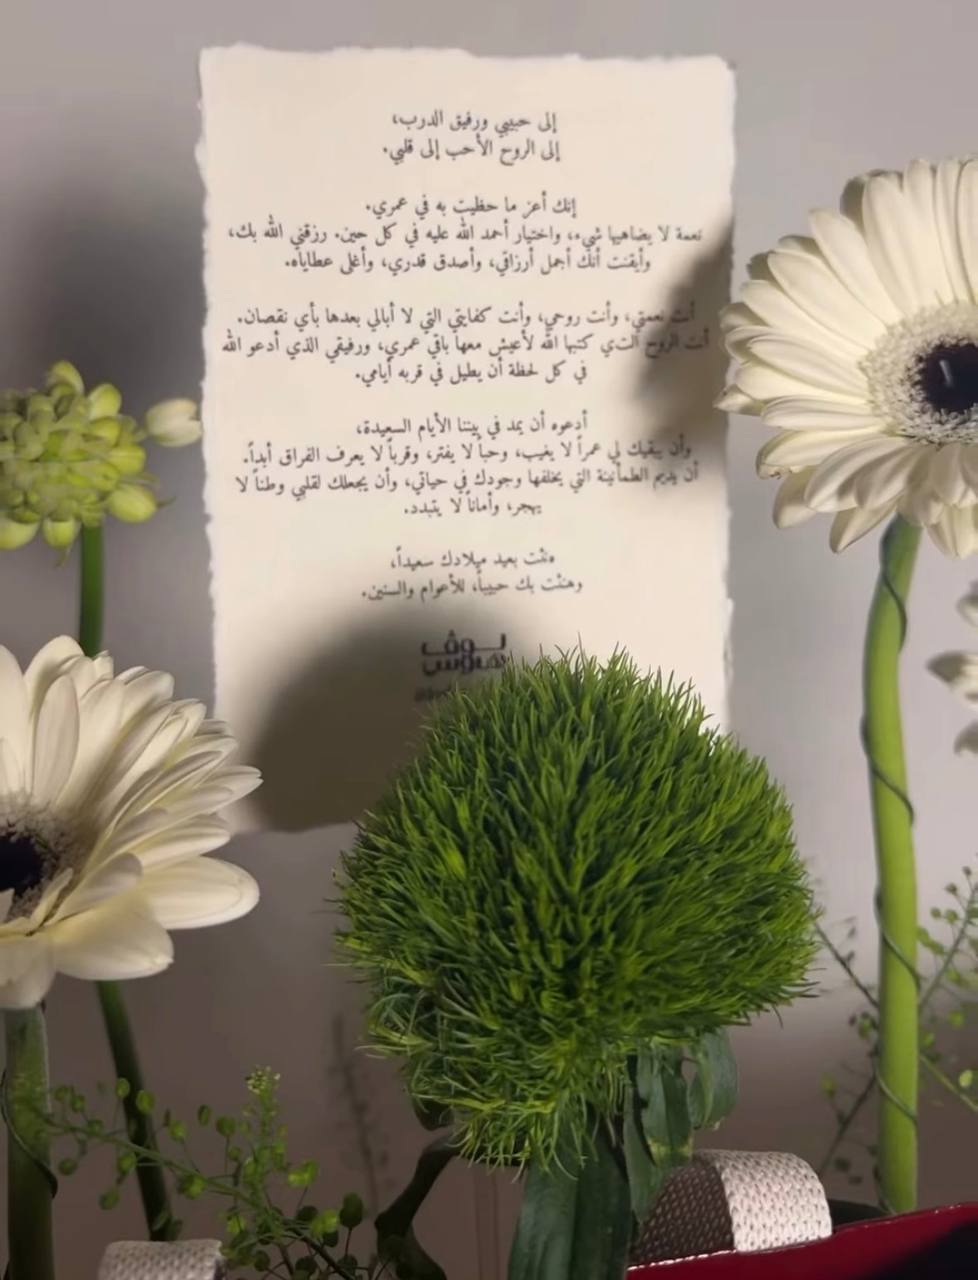 إلى حبيبي ورفيق الدرب،
إلى الروح الأحب إلى قلبي.
إنك أعز ما حظيت به في عمري.
نعمة لا يضاهيها شيء، واختيار أحمد الله عليه في كل حين. رزقني الله بك،
وأيقنت أنك أجمل أرزاقي، وأصدق قدري، وأغلى عطاياه.
أنت نعمتي، وأنت روحي، وأنت كفايتي التي لا أبالي بعدها بأي نقصان.
أنت الروح التي كتبها الله لأعيش معها باقي عمري، ورفيقي الذي أدعو الله
في كل لحظة أن يطيل في قربه أيامي.
أدعوه أن يمد في بيننا الأيام السعيدة،
وأن يبقيك لي عمراً لا يغيب، وحباً لا يفتر، وقرباً لا يعرف الفراق أبداً.
أن يديم الطمأنينة التي يخلفها وجودك في حياتي، وأن يجعلك لقلبي وطناً لا
يهجر، وأماناً لا يتبدد.
هنئت بعيد ميلادك سعيداً،
وهنئت بك حبيباً، للأعوام والسنين.
لوڤ